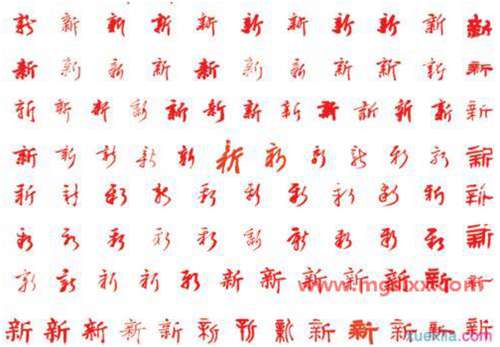 新新新新新新新新新新新
新新新新新新新新新新新
新新新新新新新新新新新新新
新新新新新新新新新新新新
新新新新新新新新新新新
新新新新新新新新新新新
新新新新新新新新新新新新
新新新新新新新新新新新新新